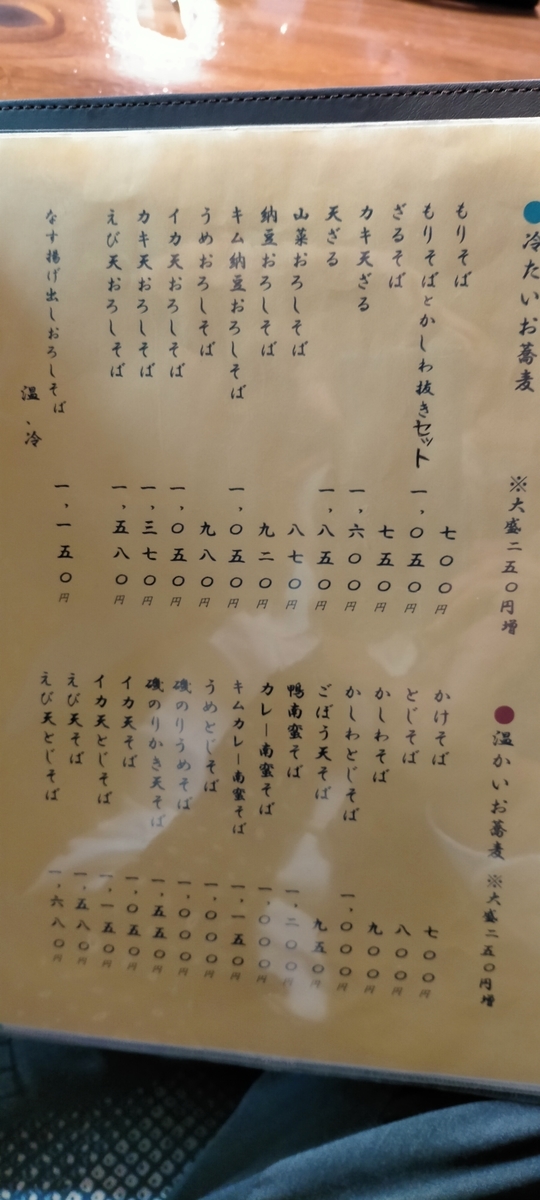 冷たいお蕎麦 ※大盛二五〇円増
もりそば 七〇〇円
もりそばとかしわ抜きセット 一,〇五〇円
ざるそば 七五〇円
カキ天ざる 一,六〇〇円
天ざる 一,八五〇円
山菜おろしそば 八七〇円
納豆おろしそば 九二〇円
キム納豆おろしそば 一,〇五〇円
うめおろしそば 九八〇円
イカ天おろしそば 一,〇五〇円
カキ天おろしそば 一,三七〇円
えび天おろしそば 一,五八〇円
なす揚げ出しおろしそば 一,一五〇円
温、冷
温かいお蕎麦 ※大盛二五〇円増
かけそば 七〇〇円
とじそば 八〇〇円
かしわそば 九〇〇円
かしわとじそば 一,〇〇〇円
ごぼう天そば 九五〇円
鴨南蛮そば 一,二〇〇円
カレー南蛮そば 一,〇〇〇円
キムカレー南蛮そば 一,一五〇円
うめとじそば 一,〇〇〇円
磯のりうめそば 一,〇〇〇円
磯のりかき天そば 一,五五〇円
イカ天そば 一,〇五〇円
イカ天とじそば 一,一五〇円
えび天そば 一,五八〇円
えび天とじそば 一,六八〇円